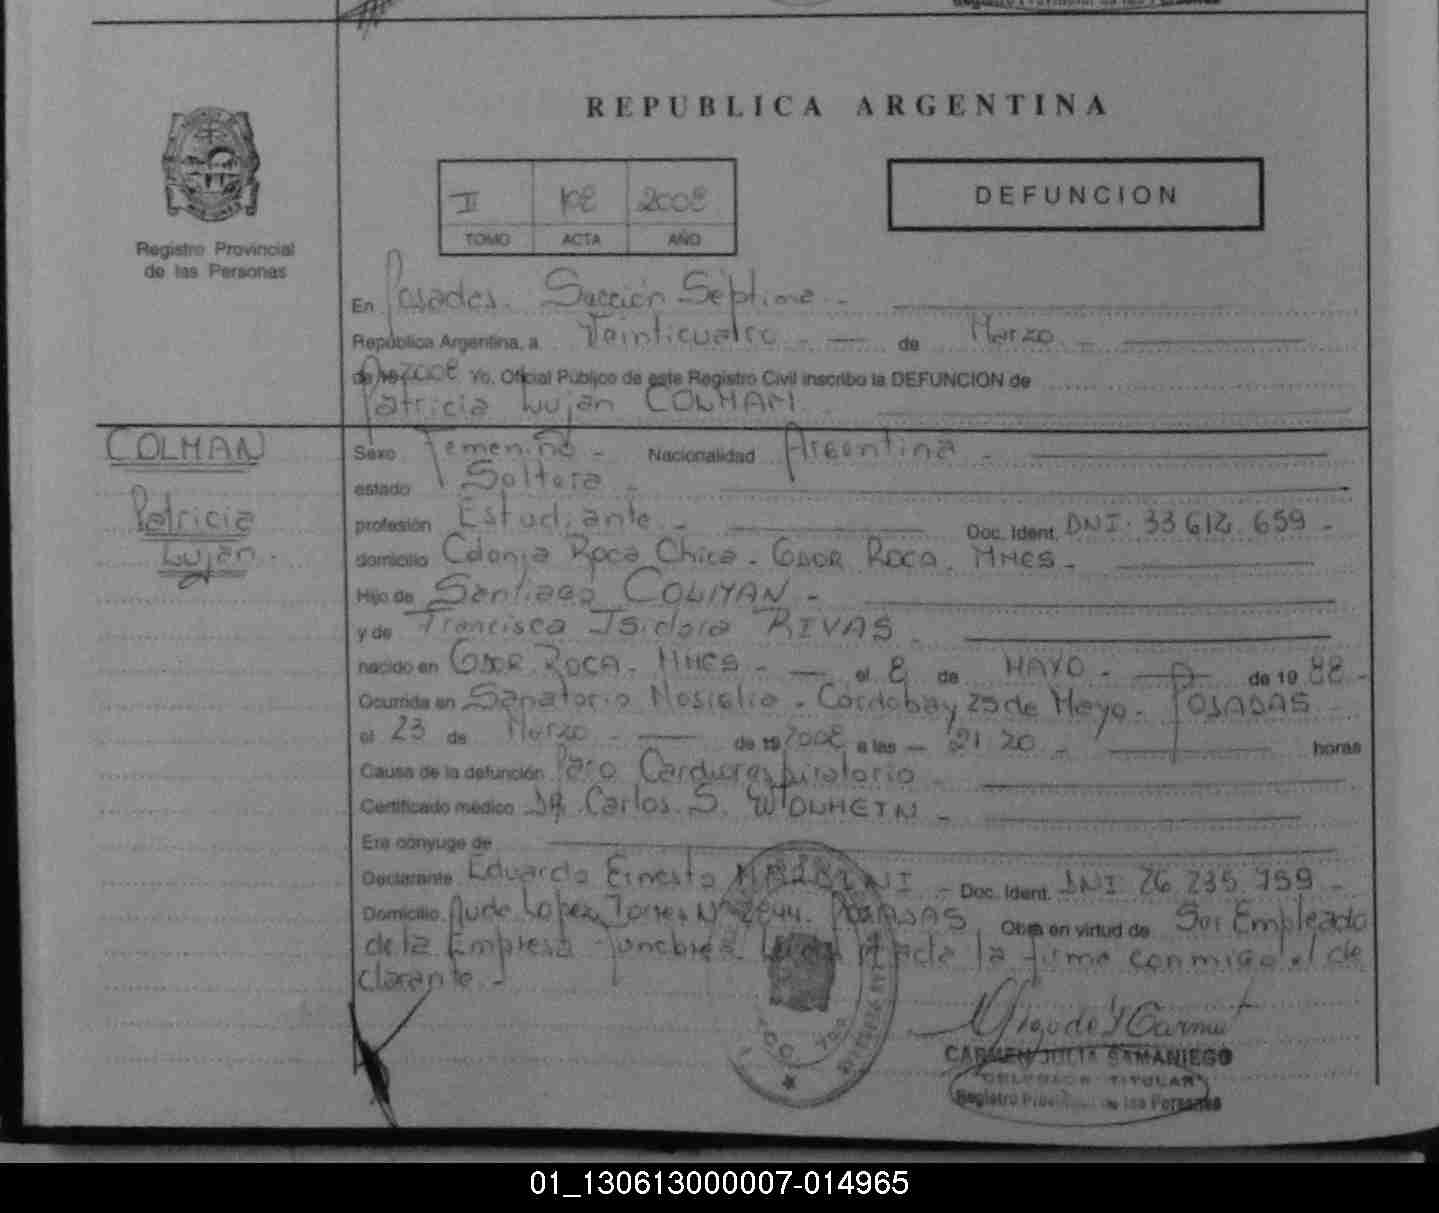 REPUBLICA ARGENTINA
DEFUNCION
II 108 2008
TOMO ACTA AÑO
Registro Provincial
de las Personas
En Posadas. Sección Séptima -
República Argentina, a Veinticuatro - de Marzo -
de 2008 Yo, Oficial Público de este Registro Civil inscribo la DEFUNCION de
Patricia Luján COLMAN
COLMAN
Patricia
Luján.
Sexo Femenino - Nacionalidad Argentina -
estado Soltera -
profesión Estudiante - Doc. Ident. DNI. 33 612. 659 -
domicilio Colonia Roca Chica - Gdor Roca. Mnes -
Hijo de Santiago COLMAN -
y de Francisca Isidora RIVAS -
nacido en Gdor. Roca. Mnes - el 8 de MAYO - de 19 88 -
Ocurrida en Sanatorio - Cordoba y 25 de Mayo - POSADAS -
el 23 de Marzo - de 19 2008 a las - 21 20 - horas
Causa de la defunción Paro Cardiorespiratorio -
Certificado médico DR. Carlos. S. -
Era cónyuge de
Declarante Eduardo Ernesto - Doc. Ident. DNI 26 235 759 -
Domicilio Avda. Lopez Torres Nº 2844. POSADAS Obra en virtud de Ser Empleado
de la Empresa Funebre. la firma conmigo el de
clarante. -
CARMEN JULIA SAMANIEGO
DELEGADA TITULAR
Registro Provincial de las Personas
01_130613000007-014965